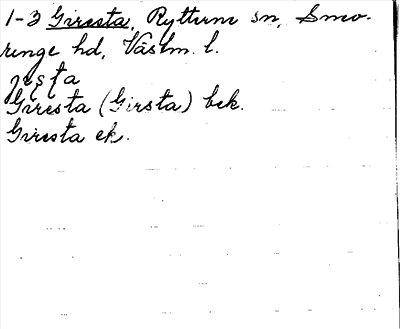 1-3 Giresta, Ryttern sn, Snvo-
ringe hd, Västm. l.
Giresta (Girsta) bek.
Giresta ek.